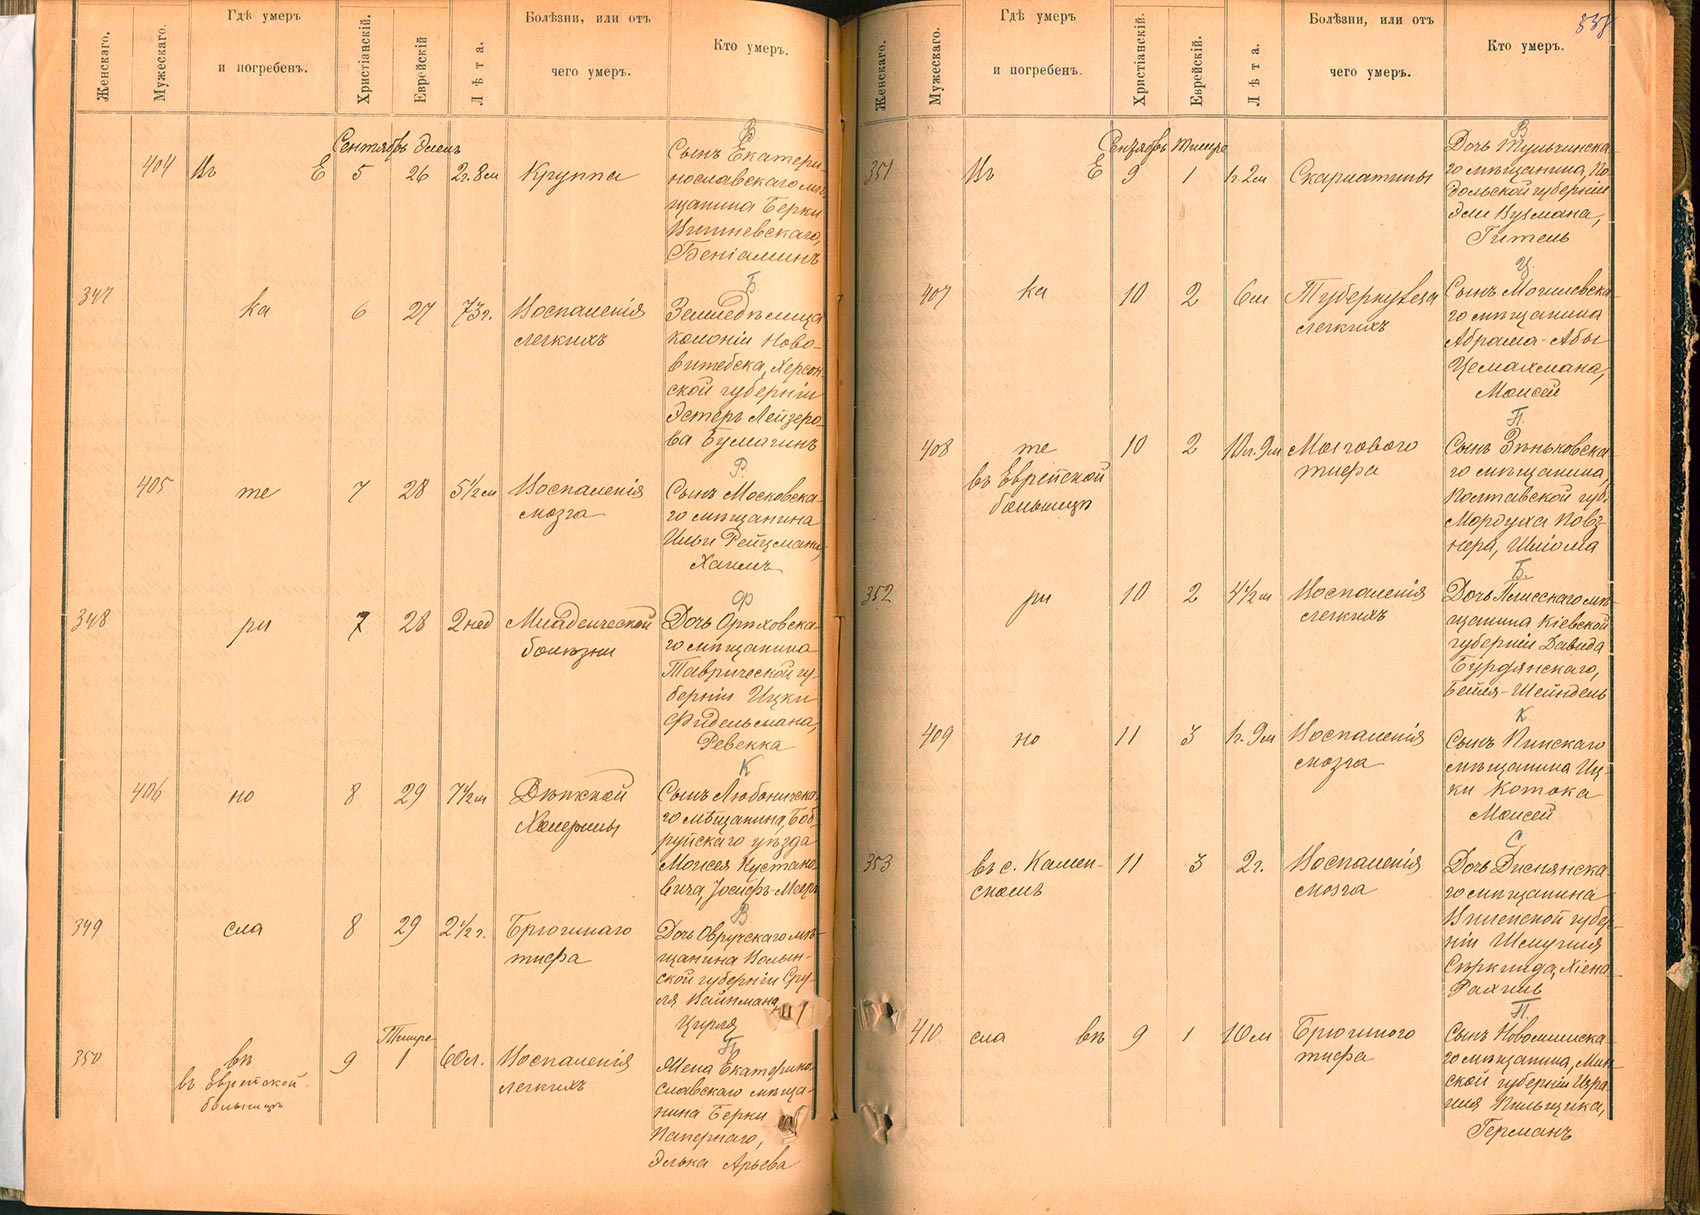 Женскаго.
Мужескаго.
Гдѣ умеръ
и погребенъ.
Христіанскій.
Еврейскій
Лѣта.
Болѣзни, или отъ
чего умеръ.
Кто умеръ.
Сентябрь Элелъ
404 Въ Е 5 26 2г.8м Круппа
В.
Сынъ Екатери-
нославскаго мѣ-
щанина Берки
Вишневскаго,
Беніаминъ
347 ка 6 27 73г. Воспаленія
легкихъ
Б.
Земледѣлица
колоніи Ново-
витебска, Херсон-
ской губерніи
Эстеръ Лейзеро-
ва Бумагинъ
405 те 7 28 5½м Воспаленія
мозга
Р.
Сынъ Московска-
го мѣщанина
Ильи Рейцмана,
Хаимъ
348 ри 7 28 2нед Младенческой
болѣзни
Ф
Дочь Орѣховска-
го мѣщанина
Таврической гу-
берніи Ицки
Фидельмана,
Ревекка
406 но 8 29 7½м Дѣтской
Холерины
К
Сынъ Любоничска-
го мѣщанина, Боб-
руйскаго уѣзда
Моисея Кустано-
вича, Іосифъ-Мееръ
349 сла 8 29 2½г. Брюшнаго
тифа
В
Дочь Овручскаго мѣ-
щанина Волын-
ской губерніи Сру-
ля Вайнмана,
Цирля
Тишре
350 вѣ 9 1 60л. Воспаленія
въ Еврейской легкихъ
больницѣ
П.
Жена Екатерино-
славскаго мѣща-
нина Берки
Папернаго,
Элька Арьева
338
Женскаго.
Мужескаго.
Гдѣ умеръ
и погребенъ.
Христіанскій.
Еврейскій.
Лѣта.
Болѣзни, или отъ
чего умеръ.
Кто умеръ.
Сентябрь Тишре
351 Въ Е 9 1 1г.2м Скарлатины
В
Дочь Тульчинска-
го мѣщанина, По-
дольской губерніи
Эли Вугмана,
Гитель
407 ка 10 2 6м Туберкулеза
легкихъ
Ц
Сынъ Могилевска-
го мѣщанина
Абрама-Абы
Цемахмана,
Моисей
408 те 10 2 10л.9м Мозгового
въ Еврейской тифа
больницѣ
П.
Сынъ Зѣньковска-
го мѣщанина,
Полтавской губ.
Мордуха Повз-
нера, Шлiома
352 ри 10 2 4½м Воспаленія
легкихъ
Б.
Дочь Плисскаго мѣ-
щанина Кіевской
губерніи Давида
Бурдянскаго,
Бейля-Шейндель
409 но 11 3 1г.9м Воспаленія
мозга
К.
Сынъ Пинскаго
мѣщанина Иц-
ки Котока
Моисей
353 въ с. Камен- 11 3 2г. Воспаленія
скомъ мозга
С
Дочь Диснянска-
го мѣщанина
Виленской губер-
ніи Шмуила
Фахлiв
410 сла вѣ 9 1 10м Брюшного
тифа
П.
Сынъ Новомышска-
го мѣщанина, Мин-
ской губерніи Изра-
иля Пильщика,
Германъ